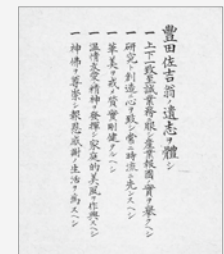 豊田佐吉翁ノ遺志ヲ體シ
一 上下一致至誠業務ニ服シ産業報國ノ實ヲ擧クヘシ
一 研究ト創造ニ心ヲ致シ常ニ時流ニ先ンスヘシ
一 華美ヲ戒メ質實剛健タルヘシ
一 温情友愛ノ精神ヲ發揮シ家庭的美風ヲ作興スヘシ
一 神佛ヲ尊崇シ報恩感謝ノ生活ヲ爲スヘシ